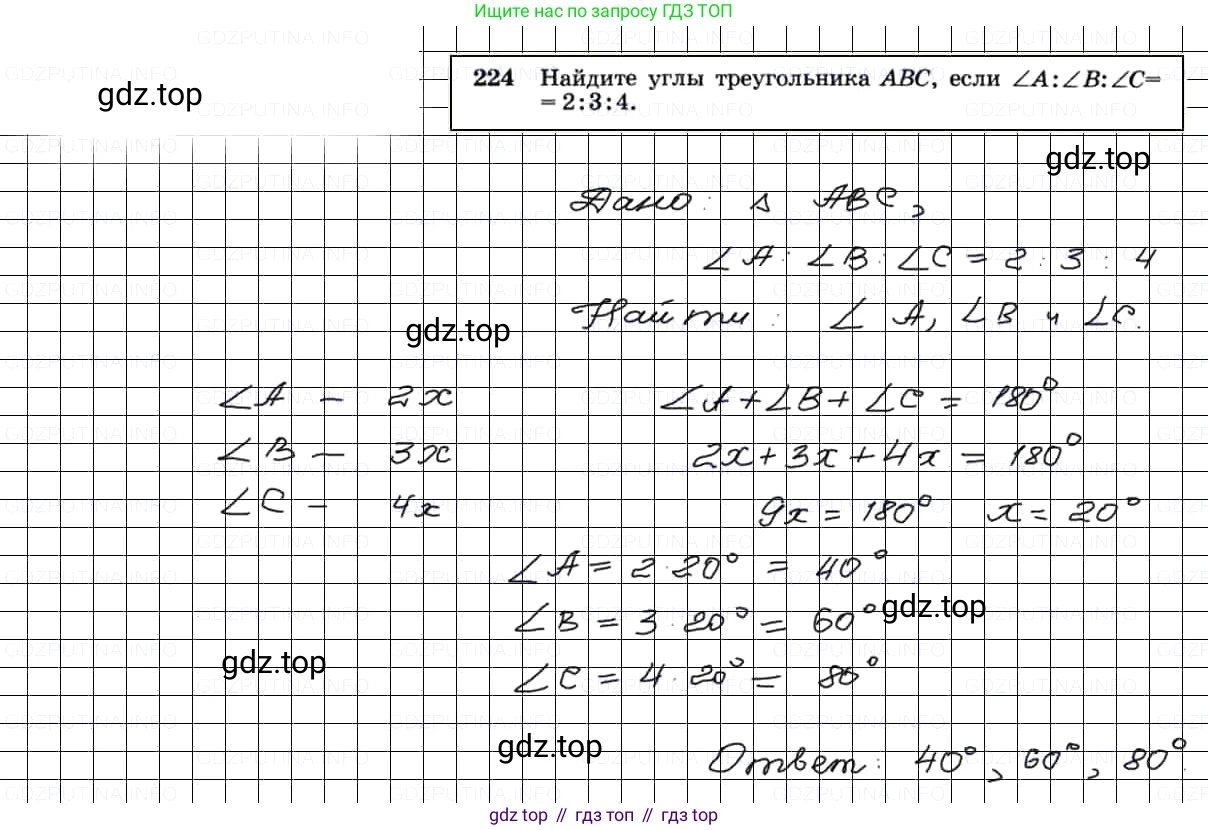 Ищите нас по запросу ГДЗ ТОП
224 Найдите углы треугольника ABC, если ∠A:∠B:∠C=
= 2:3:4.
gdz.top
gdz.top
Дано: Δ ABC,
∠A : ∠B : ∠C = 2 : 3 : 4
Найти: ∠A, ∠B и ∠C.
gdz.top
∠A – 2x
∠A + ∠B + ∠C = 180°
∠B – 3x
2x + 3x + 4x = 180°
∠C – 4x
9x = 180° x = 20°
∠A = 2·20° = 40°
∠B = 3·20° = 60°
gdz.top
∠C = 4·20° = 80°
gdz.top
gdz.top
Ответ: 40°, 60°, 80°.
gdz.top // гдз топ // gdz top